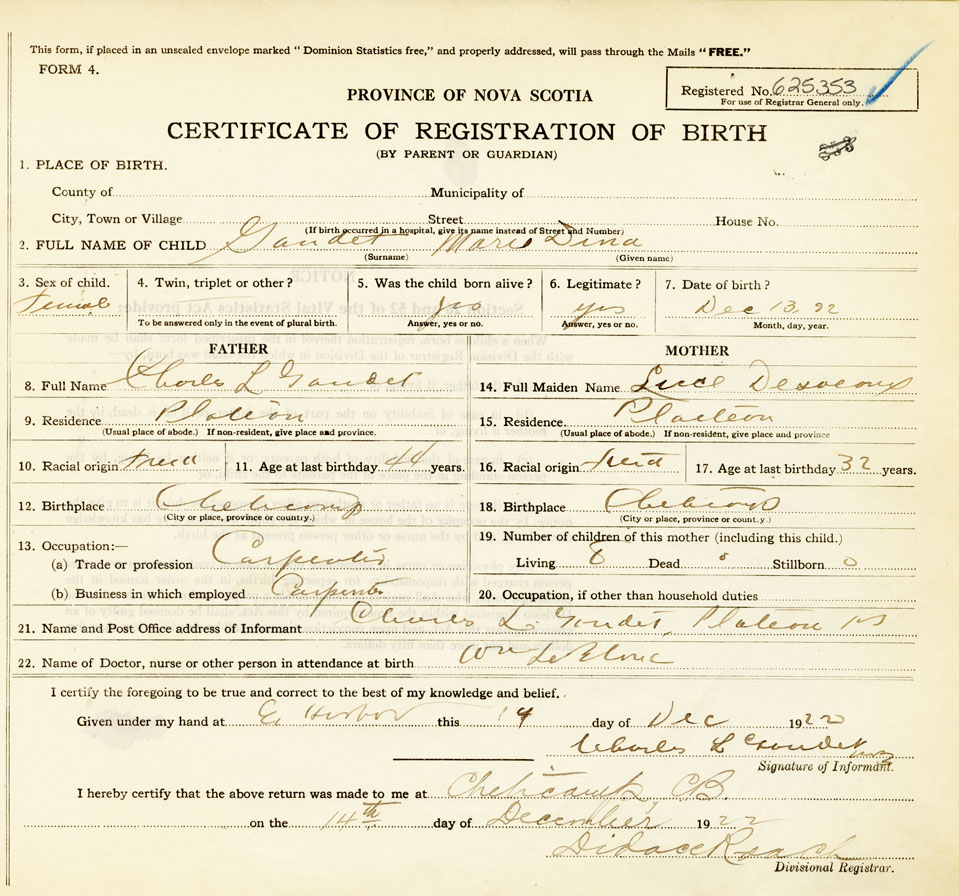 This form, if placed in an unsealed envelope marked “Dominion Statistics free,” and properly addressed, will pass through the Mails “FREE.”
FORM 4.
Registered No. 625353
For use of Registrar General only.
PROVINCE OF NOVA SCOTIA
CERTIFICATE OF REGISTRATION OF BIRTH
(BY PARENT OR GUARDIAN)
1. PLACE OF BIRTH.
County of Municipality of
City, Town or Village Street House No.
(If birth occurred in a hospital, give its name instead of Street and Number)
2. FULL NAME OF CHILD Gaudet Marie Dina
(Surname) (Given name)
3. Sex of child. 4. Twin, triplet or other? 5. Was the child born alive? 6. Legitimate? 7. Date of birth?
Female yes yes Dec 13, 22
To be answered only in the event of plural birth. Answer, yes or no. Answer, yes or no. Month, day, year.
FATHER MOTHER
8. Full Name Charles L Gaudet 14. Full Maiden Name Luce
9. Residence 15. Residence
(Usual place of abode.) If non-resident, give place and province. (Usual place of abode.) If non-resident, give place and province
10. Racial origin 11. Age at last birthday 44 years. 16. Racial origin 17. Age at last birthday 32 years.
12. Birthplace 18. Birthplace
(City or place, province or country.) (City or place, province or coun.y.)
13. Occupation:— 19. Number of children of this mother (including this child.)
(a) Trade or profession Carpenter Living 8 Dead Stillborn 0
(b) Business in which employed Carpenter 20. Occupation, if other than household duties
21. Name and Post Office address of Informant Charles L. Gaudet, Plateau NS
22. Name of Doctor, nurse or other person in attendance at birth Wm
I certify the foregoing to be true and correct to the best of my knowledge and belief.
Given under my hand at Harbor this 14 day of Dec 1922
Charles L Gaudet
Signature of Informant.
I hereby certify that the above return was made to me at Cheticamp, C.B.
on the 14th day of December 1922
Didace Roach
Divisional Registrar.